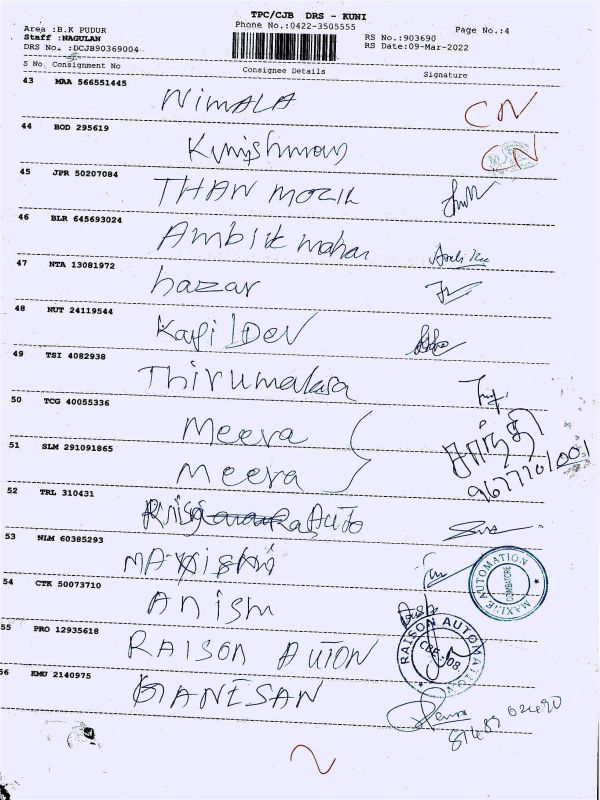 TPC/CJB DRS - KUNI
Area :B.K PUDUR Phone No.:0422-3505555 Page No.:4
Staff :NAGULAN RS No.:903690
DRS No. :DCJB90369004 RS Date:09-Mar-2022
S No Consignment No Consignee Details Signature
43 MAA 566551445 NIMALA CN
44 BOD 295619 CN
45 JPR 50207084 THAN MOZIL
46 BLR 645693024 Ambik mohan
47 NTA 13081972 hazar
48 NUT 24119544 Kapil Dev
49 TSI 4082938 Thirumalasa
50 TCG 40055336 Meera
51 SLM 291091865 Meera சாந்தி
9677701001
52 TRL 310431 Auto
53 NLM 60385293
MAXINE AUTOMATION COIMBATORE
54 CTK 50073710 Anism
55 PRO 12935618 RAISON AUTION
RAISON AUTOMATION CBE-08
56 KMU 2140975 GANESAN